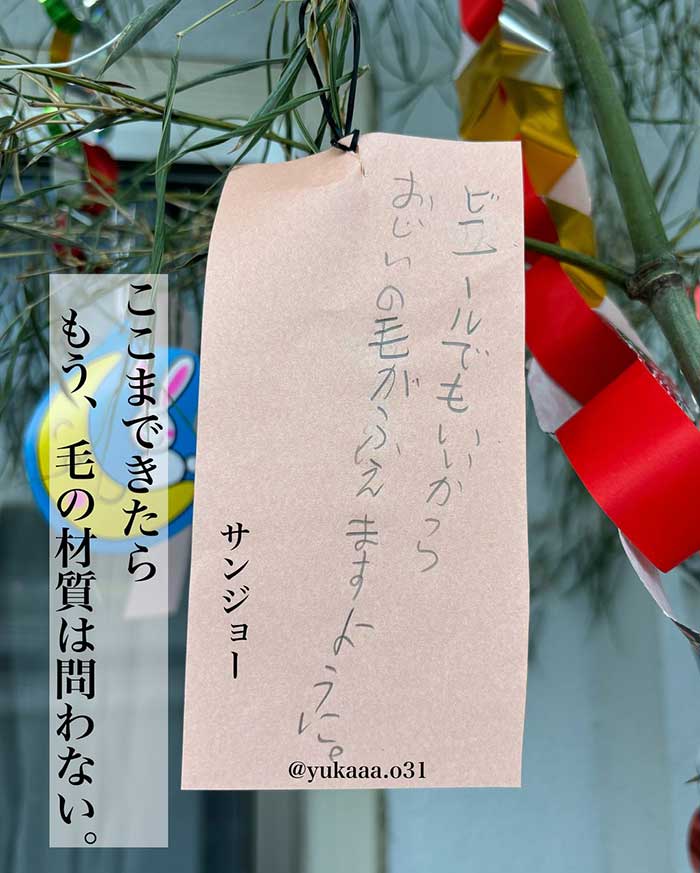 ビニールでもいいから
おじいの毛がふえますように。
サンジョー
ここまできたら
もう、毛の材質は問わない。
@yukaaa.o31